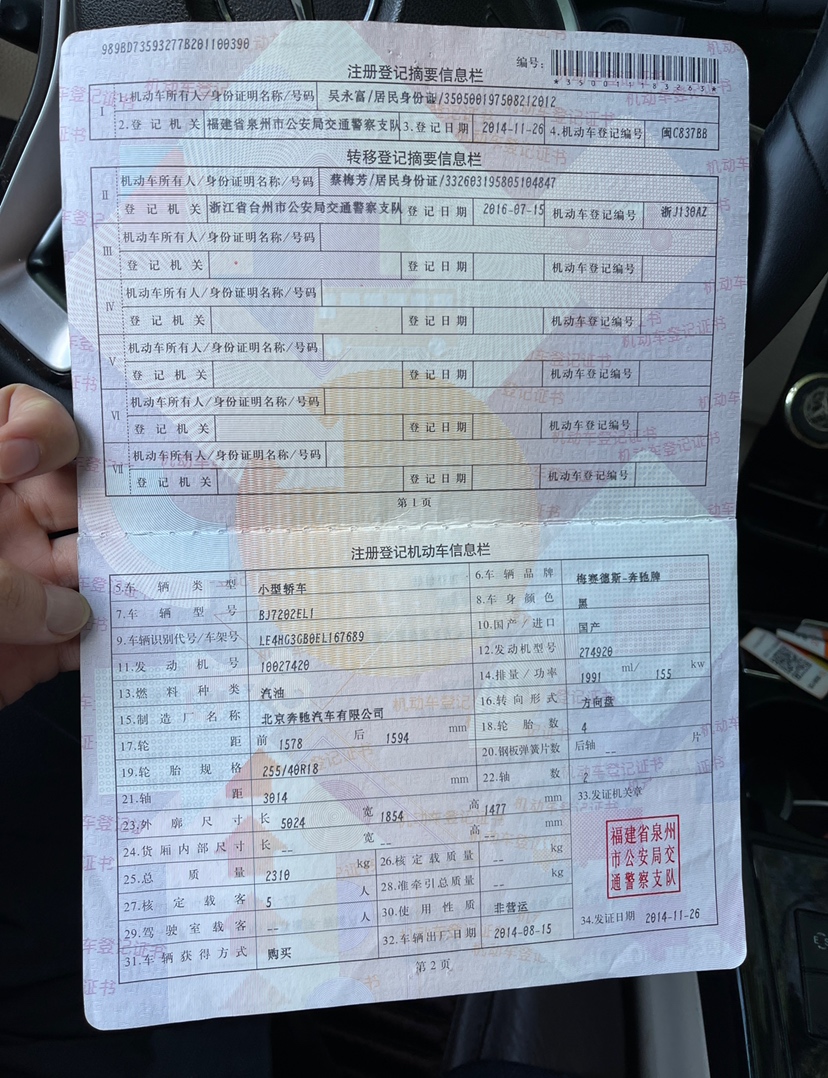 989BD73593277B201100390
编号:
*350011183263*
注册登记摘要信息栏
Ⅰ 1.机动车所有人/身份证明名称/号码 吴永富/居民身份证/350500197508212012
2.登记机关 福建省泉州市公安局交通警察支队 3.登记日期 2014-11-26 4.机动车登记编号 闽C837BB
转移登记摘要信息栏
Ⅱ 机动车所有人/身份证明名称/号码 蔡梅芳/居民身份证/332603195805104847
登记机关 浙江省台州市公安局交通警察支队 登记日期 2016-07-15 机动车登记编号 浙J130AZ
Ⅲ 机动车所有人/身份证明名称/号码
登记机关 登记日期 机动车登记编号
Ⅳ 机动车所有人/身份证明名称/号码
登记机关 登记日期 机动车登记编号
Ⅴ 机动车所有人/身份证明名称/号码
登记机关 登记日期 机动车登记编号
Ⅵ 机动车所有人/身份证明名称/号码
登记机关 登记日期 机动车登记编号
Ⅶ 机动车所有人/身份证明名称/号码
登记机关 登记日期 机动车登记编号
第1页
注册登记机动车信息栏
5.车辆类型 小型轿车 6.车辆品牌 梅赛德斯-奔驰牌
7.车辆型号 BJ7202EL1 8.车身颜色 黑
9.车辆识别代号/车架号 LE4HG3GB0EL167689 10.国产/进口 国产
11.发动机号 10027420 12.发动机型号 274920
13.燃料种类 汽油 14.排量/功率 1991 ml/ 155 kw
15.制造厂名称 北京奔驰汽车有限公司 16.转向形式 方向盘
17.轮距 前 1578 后 1594 mm 18.轮胎数 4
19.轮胎规格 255/40R18 20.钢板弹簧片数 后轴 -- 片
21.轴距 3014 mm 22.轴数 2
23.外廓尺寸 长 5024 宽 1854 高 1477 mm 33.发证机关章
24.货厢内部尺寸 长 -- 宽 -- 高 -- mm
25.总质量 2310 kg 26.核定载质量 -- kg
27.核定载客 5 人 28.准牵引总质量 -- kg
29.驾驶室载客 -- 人 30.使用性质 非营运
31.车辆获得方式 购买 32.车辆出厂日期 2014-08-15 34.发证日期 2014-11-26
福建省泉州
市公安局交
通警察支队
第2页